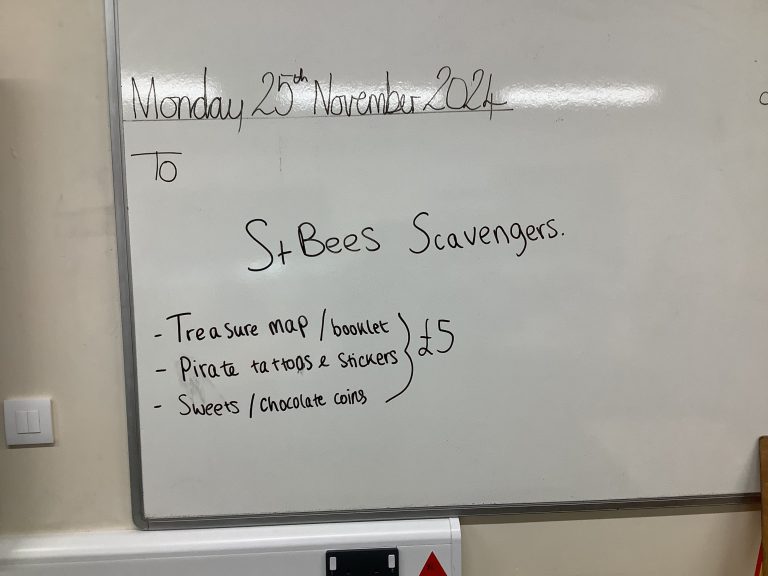 Monday 25th November 2024
To
St Bees Scavengers.
- Treasure map / booklet
- Pirate tattoos & stickers
- Sweets / chocolate coins
£5